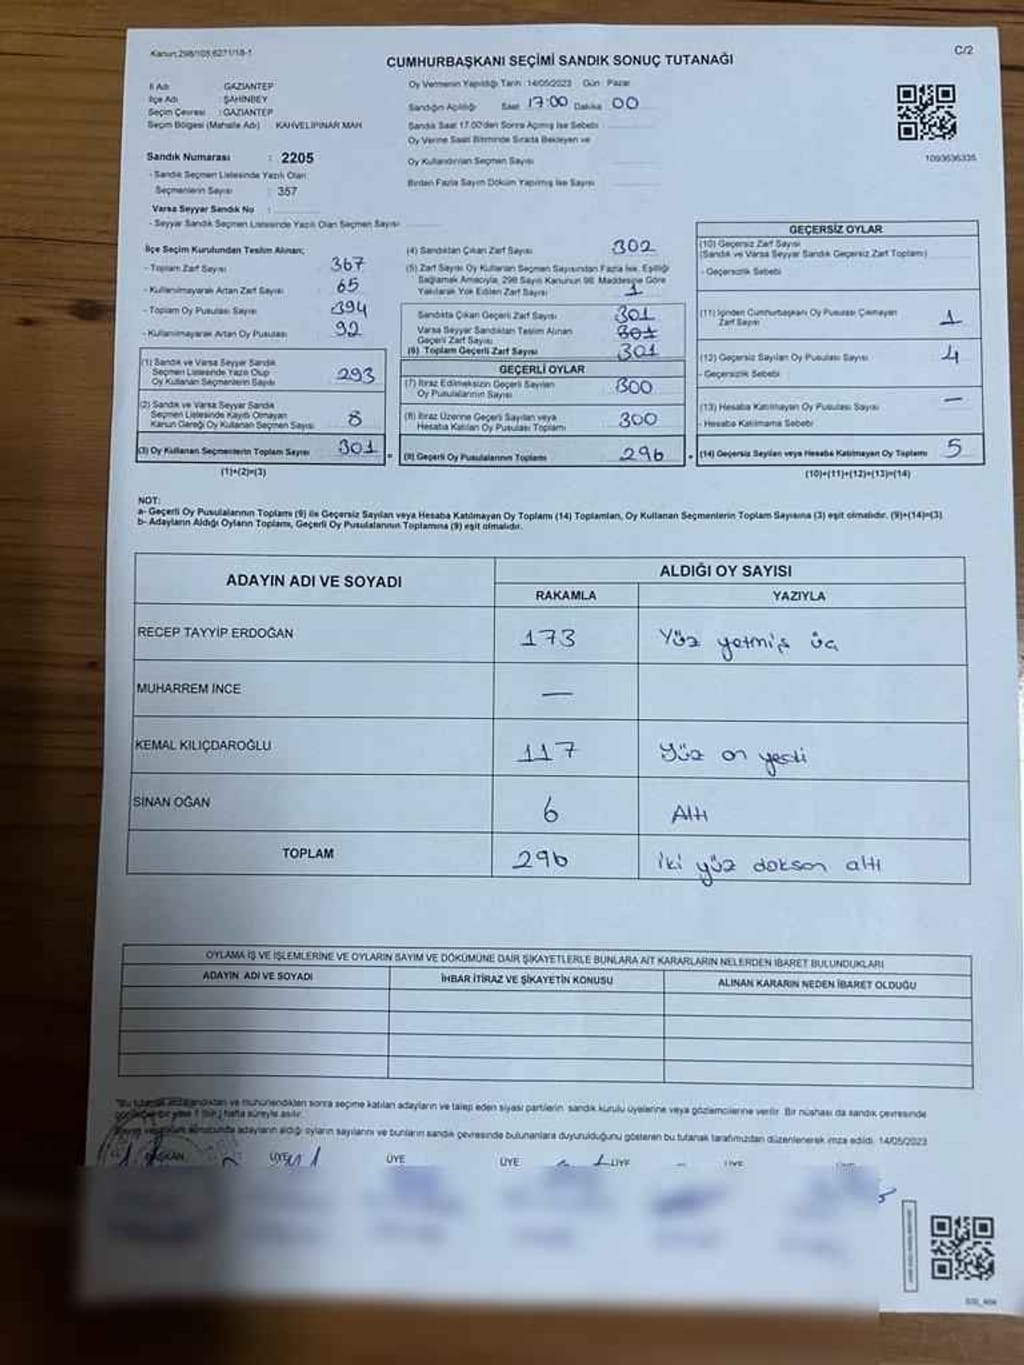 Kanun:298/105,6271/18-1
C/2
CUMHURBAŞKANI SEÇİMİ SANDIK SONUÇ TUTANAĞI
İl Adı GAZİANTEP
İlçe Adı : ŞAHİNBEY
Seçim Çevresi : GAZİANTEP
Seçim Bölgesi (Mahalle Adı) : KAHVELİPINAR MAH.
Oy Vermenin Yapıldığı Tarih :14/05/2023 Gün : Pazar
Sandığın Açıldığı Saat 17:00 Dakika 00
Sandık Saat 17.00'den Sonra Açılmış İse Sebebi
Oy Verme Saati Bitiminde Sırada Bekleyen ve
Oy Kullandırılan Seçmen Sayısı
Birden Fazla Sayım Döküm Yapılmış İse Sayısı
1093636335
Sandık Numarası : 2205
- Sandık Seçmen Listesinde Yazılı Olan
Seçmenlerin Sayısı : 357
Varsa Seyyar Sandık No :
- Seyyar Sandık Seçmen Listesinde Yazılı Olan Seçmen Sayısı
İlçe Seçim Kurulundan Teslim Alınan;
- Toplam Zarf Sayısı 367
- Kullanılmayarak Artan Zarf Sayısı 65
- Toplam Oy Pusulası Sayısı 394
- Kullanılmayarak Artan Oy Pusulası 92
(1) Sandık ve Varsa Seyyar Sandık
Seçmen Listesinde Yazılı Olup
Oy Kullanan Seçmenlerin Sayısı 293
(2) Sandık ve Varsa Seyyar Sandık
Seçmen Listesinde Kayıtlı Olmayan
Kanun Gereği Oy Kullanan Seçmen Sayısı 8
(3) Oy Kullanan Seçmenlerin Toplam Sayısı 301
(1)+(2)=(3)
(4) Sandıktan Çıkan Zarf Sayısı 302
(5) Zarf Sayısı Oy Kullanan Seçmen Sayısından Fazla İse, Eşitliği
Sağlamak Amacıyla, 298 Sayılı Kanunun 98. Maddesine Göre
Yakılarak Yok Edilen Zarf Sayısı 1
Sandıkta Çıkan Geçerli Zarf Sayısı 301
Varsa Seyyar Sandıktan Teslim Alınan
Geçerli Zarf Sayısı 301
(6) Toplam Geçerli Zarf Sayısı 301
GEÇERLİ OYLAR
(7) İtiraz Edilmeksizin Geçerli Sayılan
Oy Pusulalarının Sayısı 300
(8) İtiraz Üzerine Geçerli Sayılan veya
Hesaba Katılan Oy Pusulası Toplamı 300
(9) Geçerli Oy Pusulalarının Toplamı 296
GEÇERSİZ OYLAR
(10) Geçersiz Zarf Sayısı
(Sandık ve Varsa Seyyar Sandık Geçersiz Zarf Toplamı)
- Geçersizlik Sebebi
(11) İçinden Cumhurbaşkanı Oy Pusulası Çıkmayan
Zarf Sayısı 1
(12) Geçersiz Sayılan Oy Pusulası Sayısı 4
- Geçersizlik Sebebi
(13) Hesaba Katılmayan Oy Pusulası Sayısı —
- Hesaba Katılmama Sebebi
(14) Geçersiz Sayılan veya Hesaba Katılmayan Oy Toplamı 5
(10)+(11)+(12)+(13)=(14)
NOT:
a- Geçerli Oy Pusulalarının Toplamı (9) ile Geçersiz Sayılan veya Hesaba Katılmayan Oy Toplamı (14) Toplamları, Oy Kullanan Seçmenlerin Toplam Sayısına (3) eşit olmalıdır. (9)+(14)=(3)
b- Adayların Aldığı Oyların Toplamı, Geçerli Oy Pusulalarının Toplamına (9) eşit olmalıdır.
ADAYIN ADI VE SOYADI
ALDIĞI OY SAYISI
RAKAMLA YAZIYLA
RECEP TAYYİP ERDOĞAN 173 Yüz yetmiş üç
MUHARREM İNCE —
KEMAL KILIÇDAROĞLU 117 Yüz on yedi
SİNAN OĞAN 6 Altı
TOPLAM 296 İki yüz doksan altı
OYLAMA İŞ VE İŞLEMLERİNE VE OYLARIN SAYIM VE DÖKÜMÜNE DAİR ŞİKAYETLERLE BUNLARA AİT KARARLARIN NELERDEN İBARET BULUNDUKLARI
ADAYIN ADI VE SOYADI İHBAR İTİRAZ VE ŞİKAYETİN KONUSU ALINAN KARARIN NEDEN İBARET OLDUĞU
ve mühürlendikten sonra seçime katılan adayların ve talep eden siyasi partilerin sandık kurulu üyelerine veya gözlemcilerine verilir. Bir nüshası da sandık çevresinde
hafta süreyle asılır.
adayların aldığı oyların sayılarını ve bunların sandık çevresinde bulunanlara duyurulduğunu gösteren bu tutanak tarafımızdan düzenlenerek imza edildi. 14/05/2023
BAŞKAN ÜYE ÜYE ÜYE ÜYE ÜYE